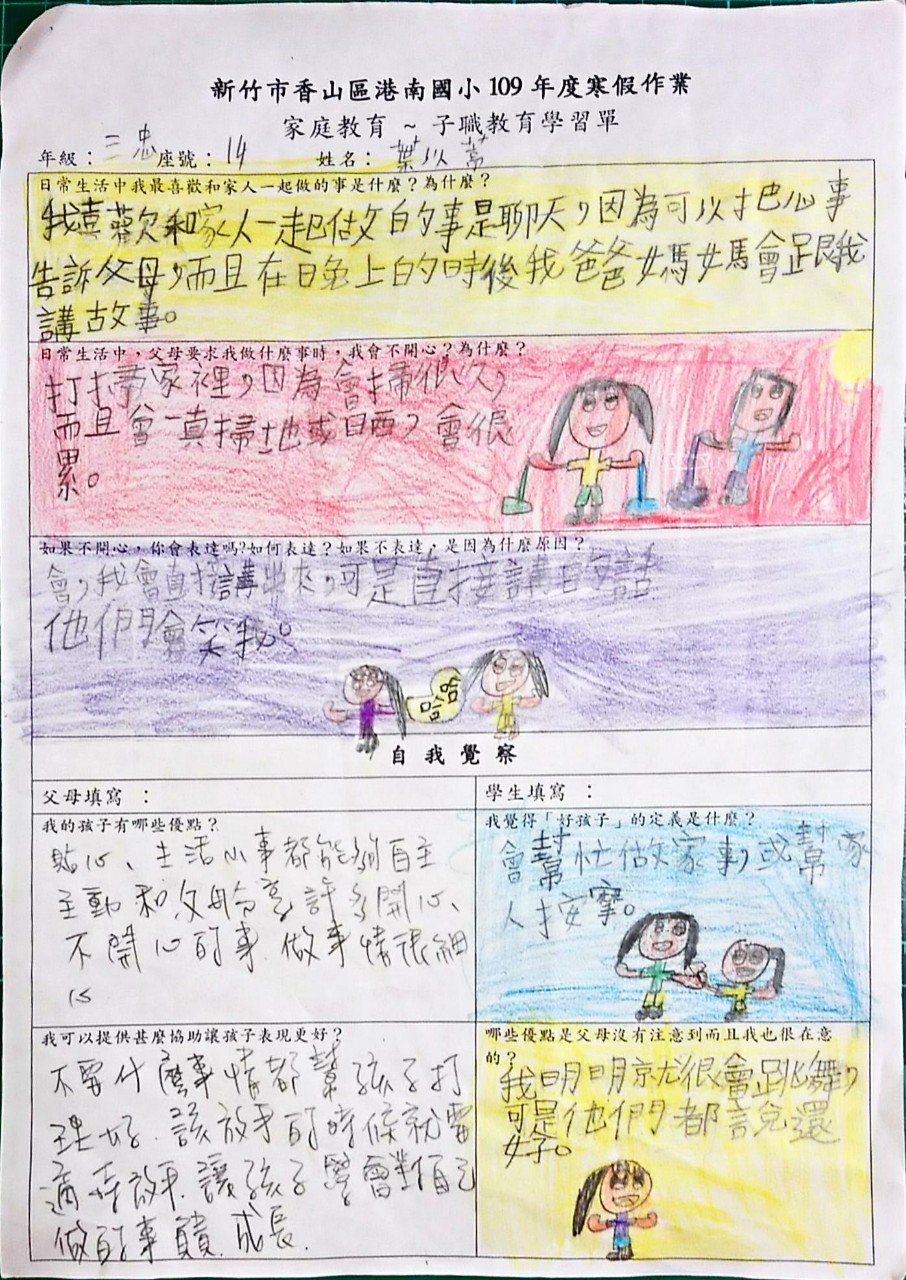 新竹市香山區港南國小 109 年度寒假作業
家庭教育 ~ 子職教育學習單
年級：三忠 座號：14 姓名：葉以
日常生活中我最喜歡和家人一起做的事是什麼？為什麼？
我喜歡和家人一起做的事是聊天，因為可以把心事
告訴父母，而且在日晚上的時後我爸爸媽媽會跟我
講故事。
日常生活中，父母要求我做什麼事時，我會不開心？為什麼？
打掃家裡，因為會掃很久，
而且會一真掃地或，會很
累。
如果不開心，你會表達嗎?如何表達？如果不表達，是因為什麼原因？
會，我會直接講出來，可是直接講的話
他們會笑我。
哈哈
自我覺察
父母填寫 ：
學生填寫 ：
我的孩子有哪些優點？
貼心、生活小事都能夠自主
主動和父母分享許多開心、
不開心的事 做事情很細
心
我覺得「好孩子」的定義是什麼？
會幫忙做家事，或幫家
人按摩。
我可以提供甚麼協助讓孩子表現更好？
不要什麼事情都幫孩子打
理好. 該放手的時候就需
適時放手. 讓孩子學會對自己
做的事負責. 成長.
哪些優點是父母沒有注意到而且我也很在意
的？
我明明就很會跳舞，
可是他們都說還
好。